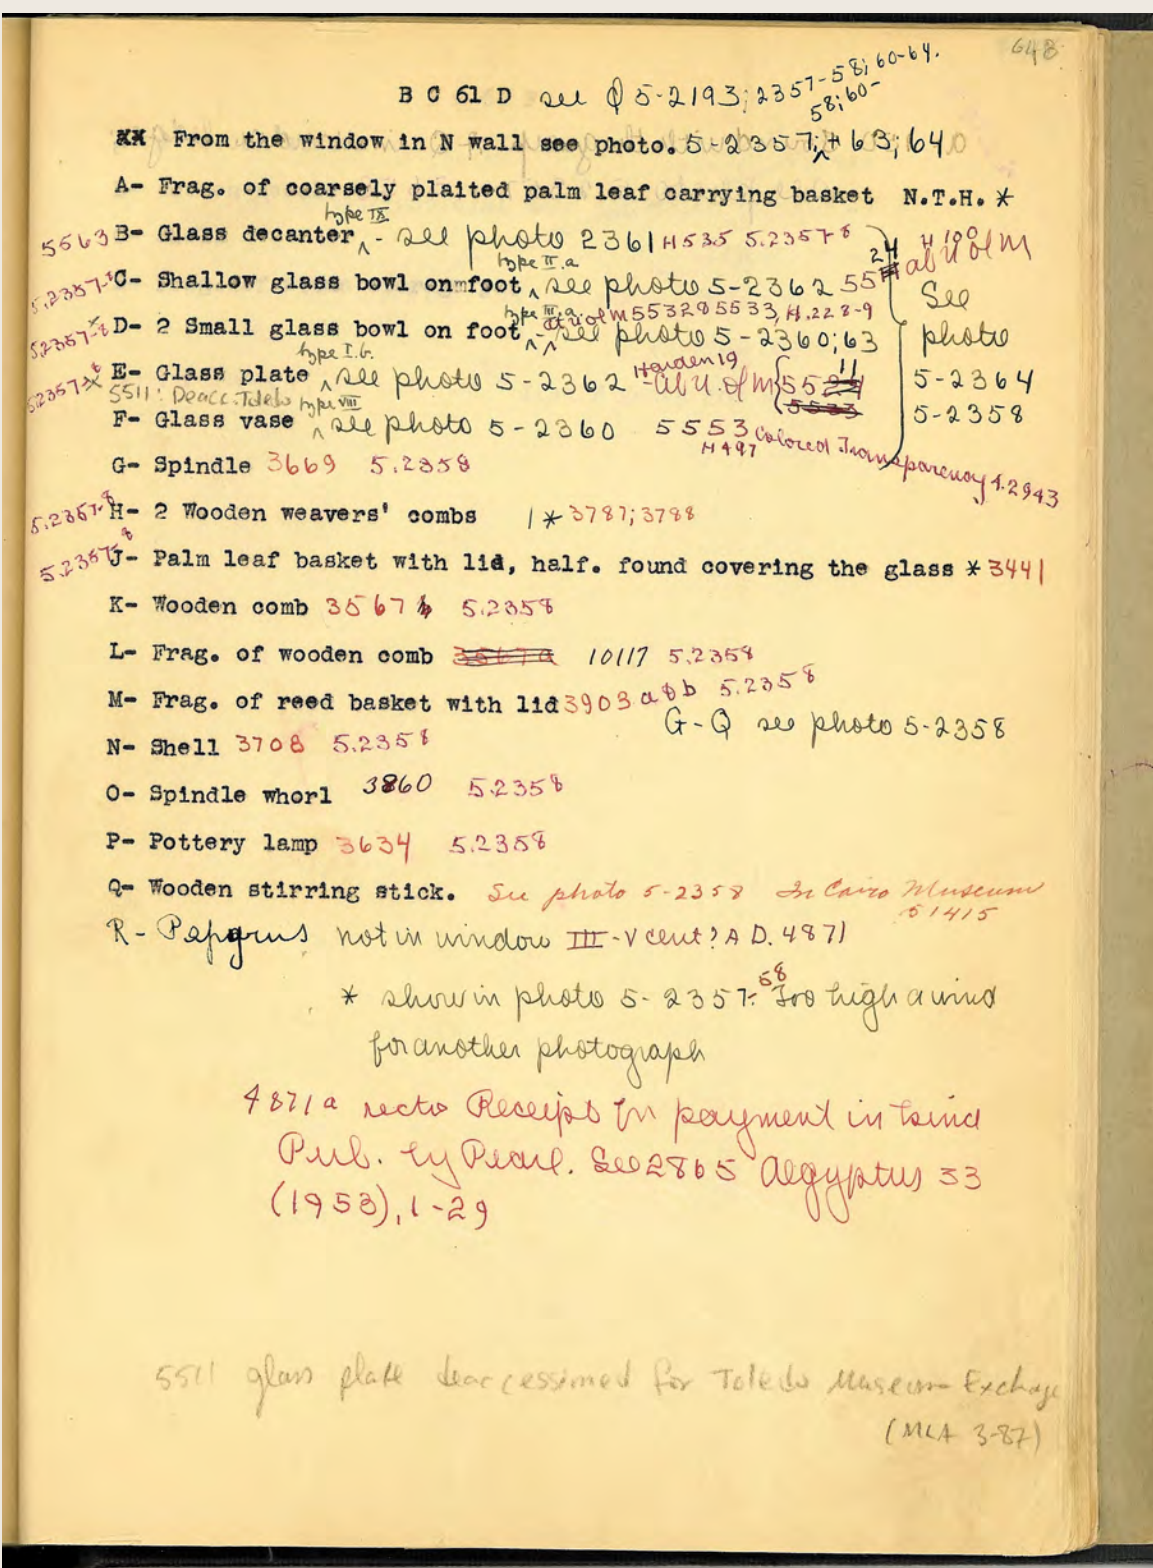 648
B C 61 D see φ 5-2193; 2357-58; 60-64.
58; 60-
From the window in N wall see photo. 5-2357; + 63; 64
A- Frag. of coarsely plaited palm leaf carrying basket N.T.H. *
type IX
5563 B- Glass decanter ^ - see photo 2361 H535 5.2357-8
type II.a
5.2357-8 C- Shallow glass bowl on foot ^ see photo 5-2362 55 24 H 100 at U of M
type III.a. at U of M 5532 & 5533, H. 228-9
5.2357-8 D- 2 Small glass bowl on foot ^ - see photo 5-2360; 63
See
photo
5-2364
5-2358
type I.b. Harden 19
5.2357-8 E- Glass plate ^ see photo 5-2362 - at U. of M { 55 11
5511: Deacc: Toledo type VIII 5533
F- Glass vase ^ see photo 5-2360 5553 Colored Transparency 4.2943
H497
G- Spindle 3669 5.2358
5.2357-8 H- 2 Wooden weavers' combs 1 * 3787; 3788
5.2357-8 J- Palm leaf basket with lid, half. found covering the glass * 3441
K- Wooden comb 3567 5.2358
L- Frag. of wooden comb 3567a 10117 5.2358
M- Frag. of reed basket with lid 3903 a & b 5.2358
G-Q see photo 5-2358
N- Shell 3708 5.2358
O- Spindle whorl 3860 5.2358
P- Pottery lamp 3634 5.2358
Q- Wooden stirring stick. See photo 5-2358 In Cairo Museum
51415
R- Papyrus not in window III-V cent? A D. 4871
* show in photo 5-2357-58 Too high a wind
for another photograph
4871a recto Receipt for payment in kind
Pub. by Pearl. See 2865 Aegyptus 33
(1953), 1-29
5511 glass plate deaccessioned for Toledo Museum Exchage
(MLA 3-87)